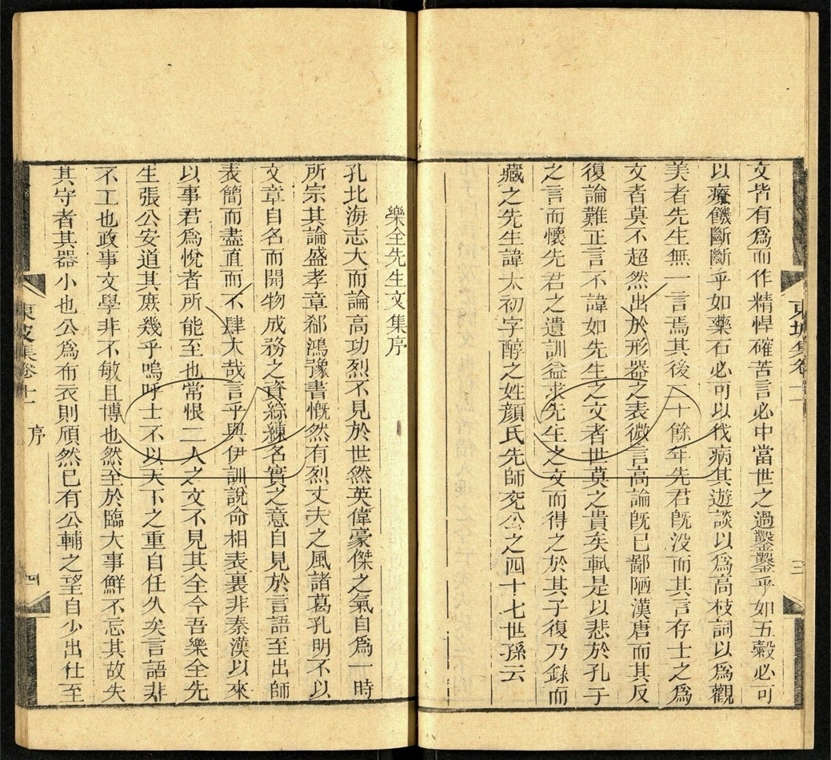 東坡集卷十一
三
文皆有爲而作精悍確苦言必中當世之過鑿鑿乎如五穀必可
以療饑斷斷乎如藥石必可以伐病其遊談以爲高枝詞以爲觀
美者先生無一言焉其後二十餘年先君旣没而其言存士之爲
文者莫不超然出於形器之表微言高論旣已鄙陋漢唐而其反
復論難正言不諱如先生之文者世莫之貴矣軾是以悲於孔子
之言而懷先君之遺訓益求先生之文而得之於其子復乃錄而
藏之先生諱太初字醇之姓顏氏先師兖公之四十七世孫云
樂全先生文集序
孔北海志大而論高功烈不見於世然英偉豪傑之氣自爲一時
所宗其論盛孝章郗鴻豫書慨然有烈丈夫之風諸葛孔明不以
文章自名而開物成務之資綜練名實之意自見於言語至出師
表簡而盡直而不肆大哉言乎與伊訓說命相表裏非秦漢以來
以事君爲悅者所能至也常恨二人之文不見其全今吾樂全先
生張公安道其庶幾乎嗚呼士不以天下之重自任久矣言語非
不工也政事文學非不敏且博也然至於臨大事鮮不忘其故失
其守者其器小也公爲布衣則頎然已有公輔之望自少出仕至
東坡集卷十一
序
四